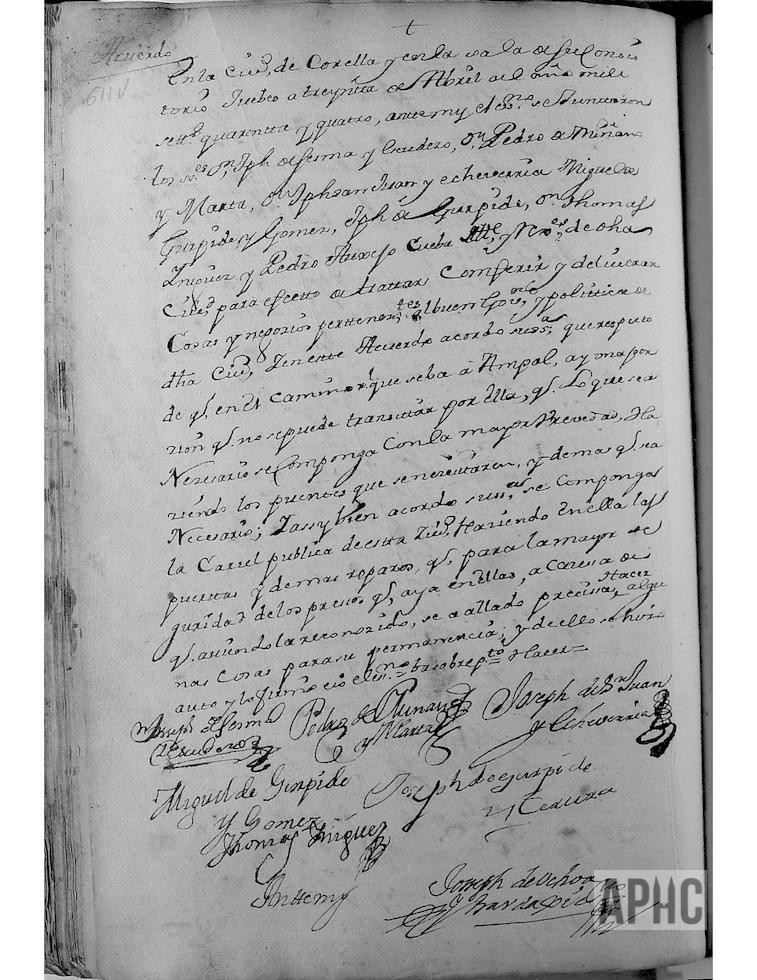 Acuerdo
611v
En la Ciud, de Corella y en la sala de su Consis
torio Juebes a treynta de Abril del año mil
settos quarentta y quatro, ante my el esno se Juntaron
los sres Dn Jph de sesma y Escudero, Dn Pedro de Miñano
y Martta, Dn Jph san Juan y echeverria Miguel de
Gurpide y Gomez, Jph de Gurpide, Dn Thomas
Yñiguez y Pedro Auxejo Cueba Alle, y Rres, de dha
Ciud, para efectto de trattar Conferir y deliverar
Cosas y negozios perttenezttes al buen Govno y polittica de
dha Ciud, Y en este Acuerdo acordo sussa, que respecto
de qe en el Camino que se ba á Ampol, ay una por
zion qe no se puede transittar por ella, qe Lo que sea
Nezesario se Componga Con la mayor Brevedad, Ha
ziendo los puentes que se nezesitaren, y demas qe sea
Necesario; Y assy bien acordo sussas, se Compongas
la Carzel publica de esta Ziud, Haziendo En ella las
puerttas y demas reparos, qe para la mayor se
guridad de los presos qe, aya en ellas, a Causa de
qe aviendola reconozido, se a allado precissa Hacer algu
nas Cosas para su permanencia; y de ello se hizo
auto y lo firmo e yo el esno = ba sobrepto = Hacer =
Dn Joseph de sesma
y Escudero
Pedro de Miñano
y Martta
Joseph de Sn Juan
y Echeverria
Miguel de Gurpide
y Gomez
Joseph de gurpide
Thomas Yñiguez
Antte my
Joseph de Ochoa
APHC